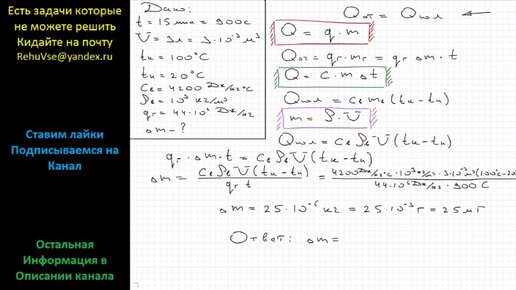 Есть задачи которые
не можете решить
Кидайте на почту
RehuVse@yandex.ru
Ставим лайки
Подписываемся на
Канал
Остальная
Информация в
Описании канала
Дано:
t = 15 мин = 900 с
V = 3 л = 3·10⁻³ м³
tк = 100°С
tн = 20°С
Cв = 4200 Дж/кг°С
ρв = 10³ кг/м³
qг = 44·10⁶ Дж/кг
Δm - ?
Qот = Qпол
Q = q·m
Qот = qг·mг = qг Δm·t
Q = c·m Δt
Qпол = Cв mв (tк - tн)
m = ρ·V
Qпол = Cв ρв V (tк - tн)
qг·Δm·t = Cв ρв V (tк - tн)
Δm = Cв ρв V (tк - tн) / qг t = 4200 Дж/кг°С · 10³ кг/м³ · 3·10⁻³ м³ (100°С - 20 / 44·10⁶ Дж/кг · 900 С
Δm = 25·10⁻⁶ кг = 25·10⁻³ г = 25 мг
Ответ: Δm =